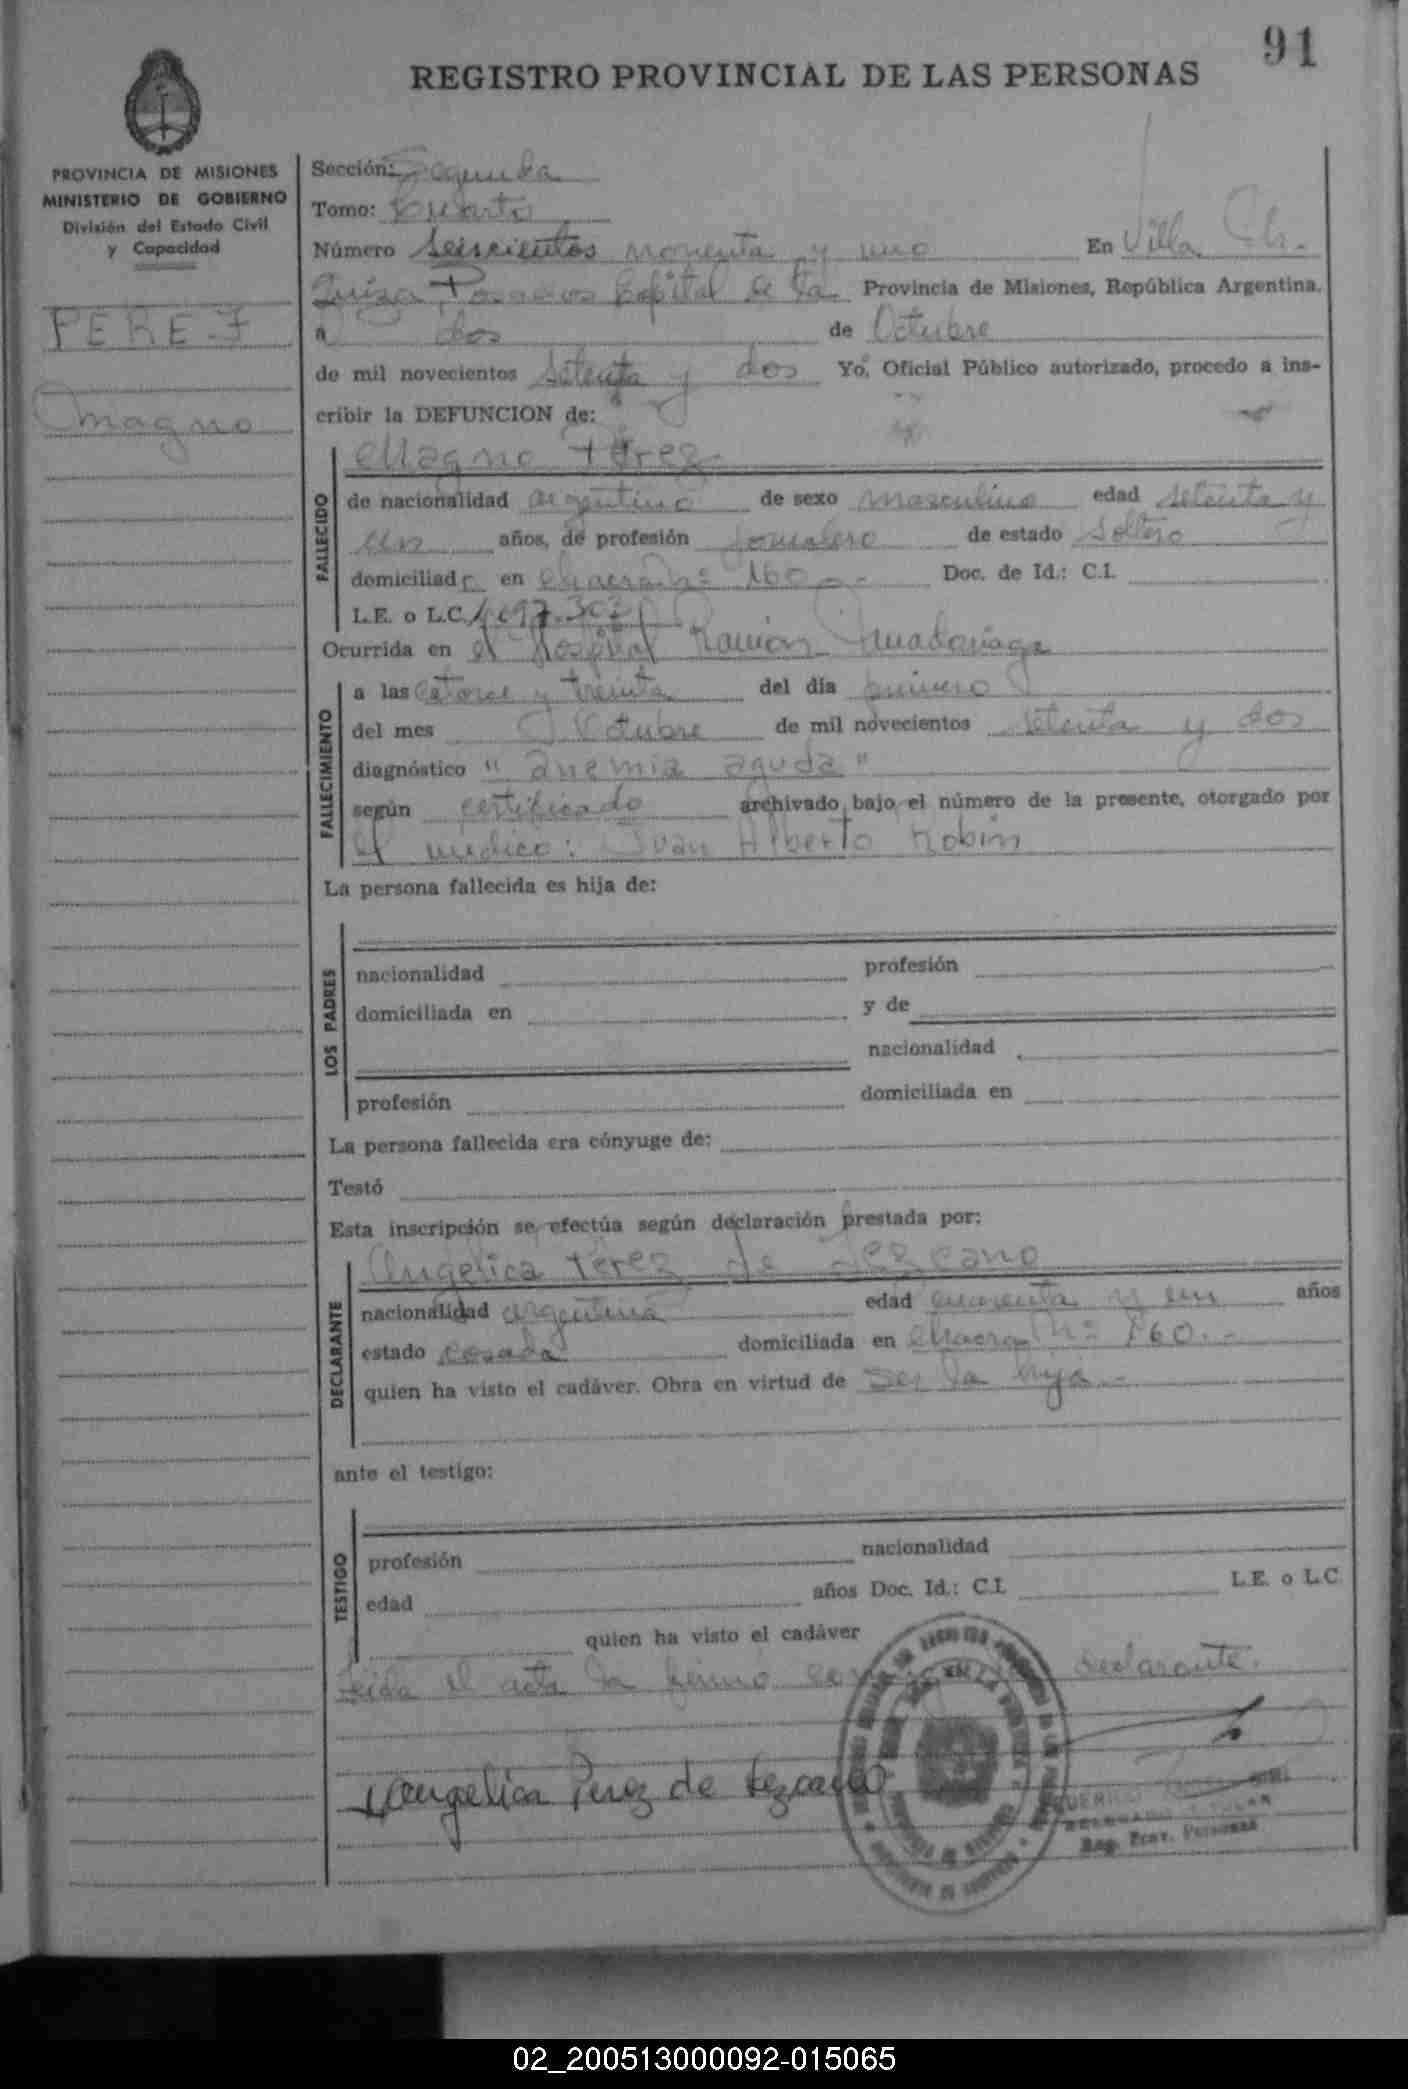 91
REGISTRO PROVINCIAL DE LAS PERSONAS
PROVINCIA DE MISIONES
MINISTERIO DE GOBIERNO
División del Estado Civil
y Capacidad
PEREZ
Magno
Sección: Segunda
Tomo: Cuarto
Número Seiscientos noventa y uno En Villa Ch.
Posadas Capital de la Provincia de Misiones, República Argentina,
a dos de Octubre
de mil novecientos setenta y dos Yo, Oficial Público autorizado, procedo a ins-
cribir la DEFUNCION de:
FALLECIDO
Magno Pérez
de nacionalidad argentino de sexo masculino edad setenta y
un años, de profesión jornalero de estado soltero
domiciliado en chacra Nº 160.- Doc. de Id.: C.I.
L.E. o L.C.
Ocurrida en el Hospital Ramón Madariaga
FALLECIMIENTO
a las catorce y treinta del día primero
del mes Octubre de mil novecientos setenta y dos
diagnóstico "anemia aguda"
según certificado archivado bajo el número de la presente, otorgado por
el médico: Juan Alberto Robin
La persona fallecida es hija de:
LOS PADRES
nacionalidad profesión
domiciliada en y de
nacionalidad
profesión domiciliada en
La persona fallecida era cónyuge de:
Testó
Esta inscripción se efectúa según declaración prestada por:
DECLARANTE
Angélica Pérez de Lezcano
nacionalidad argentina edad cuarenta y un años
estado casada domiciliada en chacra Nº 160.-
quien ha visto el cadáver. Obra en virtud de ser la hija.-
ante el testigo:
TESTIGO
profesión nacionalidad
edad años Doc. Id.: C.I. L.E. o L.C.
quien ha visto el cadáver
Leida el acta la firmó declarante.
Angelica Perez de Lezcano
DELEGADO TITULAR
Reg. Prov. Personas
02_200513000092-015065